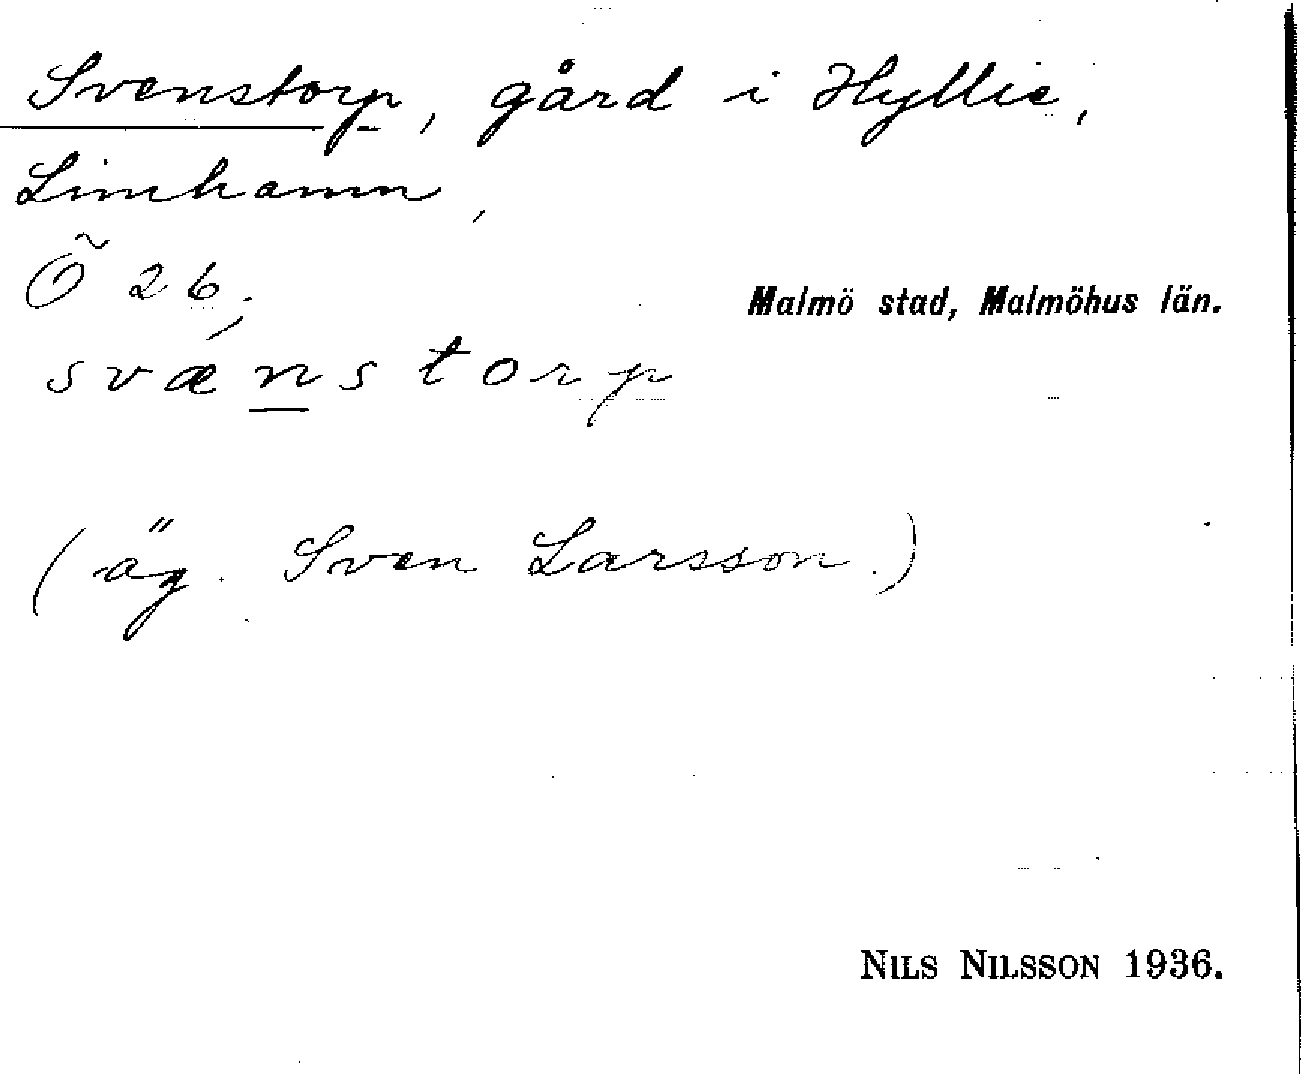 Svenstorp, gård i Hyllie,
Limhamn,
Ö 26;
Malmö stad, Malmöhus län.
svænstorp
(äg. Sven Larsson.)
NILS NILSSON 1936.